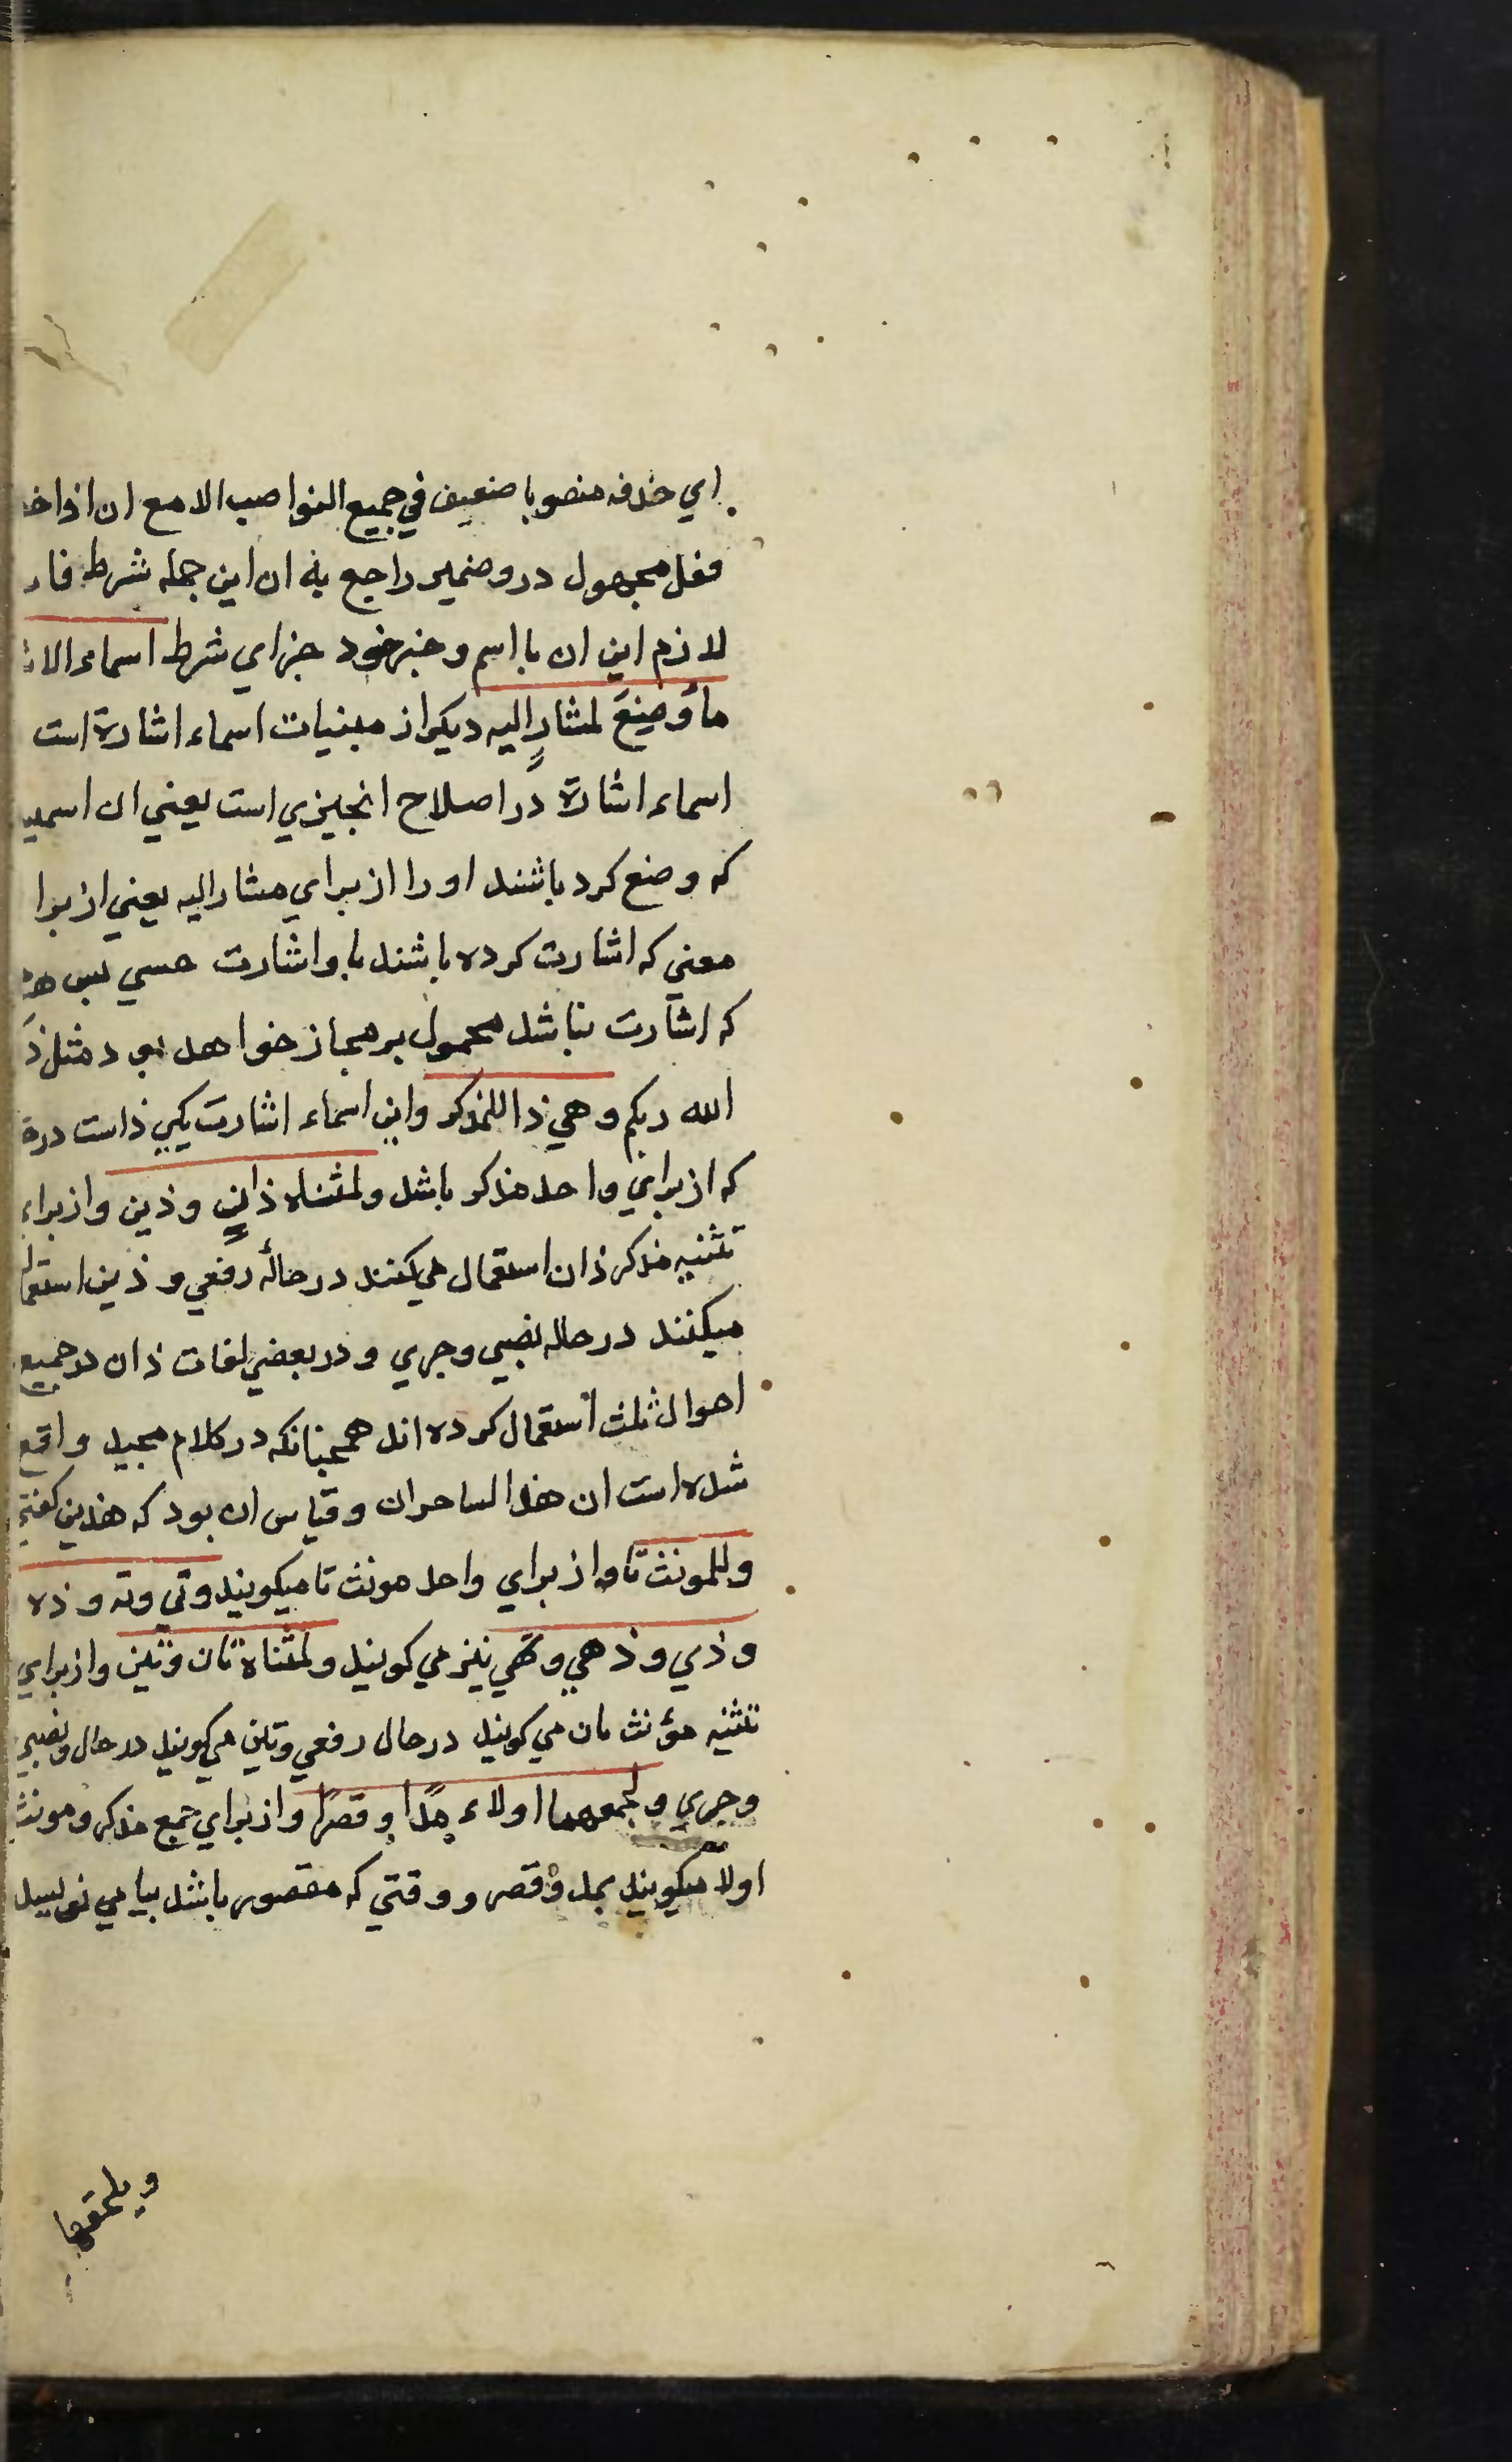 اي حذفه منصوبا ضعيف في جميع النواصب الا مع ان اذا خف
فعل مجهول درو ضمير راجع به ان اين جمله شرط فانه
لازم اين ان با اسم و خبر خود جزاي شرط اسماء الا
ما وضع لمشار اليه ديكر از مبنيات اسماء اشارة است
اسماء اشارة در اصلاح انجيزي است يعني ان اسميي
كه وضع كرد باشند او را از براي مشار اليه يعني از برا
معني كه اشارت كرده باشند باو اشارت حسي پس هر
كه اشارت نباشد محمول بر مجاز خواهد بود مثل ذ
الله ربكم وهي ذا للمذكر واين اسماء اشارت يكي ذاست در
كه از براي واحد مذكر باشد ولمثناه ذان وذين واز براي
تثنيه مذكر ذان استعمال مي كنند در حالة رفعي و ذين استعمال
ميكنند در حاله نصبي و جري و در بعضي لغات ذان در جميع
احوال ثلث استعمال كرده اند همچنانكه در كلام مجيد واقع
شده است ان هذا لساحران و قياس ان بود كه هذين كفتي
وللمونث تا واز براي واحد مونث تا ميكويند وتي وته و ذه
وذي و ذهي وتهي نيز مي كويند ولمثناة تان وتين واز براي
تثنيه مؤنث تان مي كويند در حال رفعي وتين مي كويند در حال نصبي
وجري و لجمعهما اولاء مدا وقصرا واز براي جمع مذكر ومونث
اولا ميكويند بمد وقصر و وقتي كه مقصور باشد بيا مي نويسد
ويلحقها